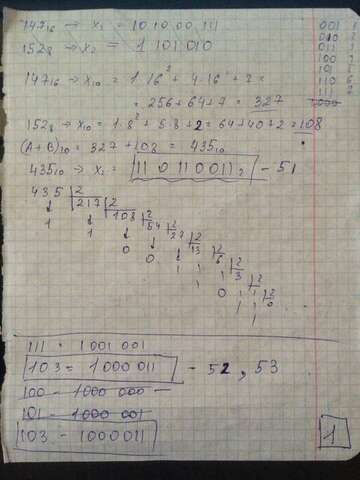 147₁₆ → x₂ = 1010 00 111
152₈ → x₂ = 1 101 010
147₁₆ → x₁₀ = 1·16² + 4·16 + 7 =
= 256+64+7 = 327
152₈ → x₁₀ = 1·8² + 5·8 + 2 = 64+40+2 = 108
(A+B)₁₀ = 327 + 108 = 435₁₀
435₁₀ → x₂ = 110110011₂ - 51
435 |2
1 217 |2
1 108 |2
0 54 |2
0 27 |2
1 13 |2
1 6 |2
0 3 |2
1 1 |2
1 0
001
010 2
011 3
100
101
110 6
111
1000
111 - 1001 001
103 = 1000 011 - 52, 53
100 - 1000 000 -
101 - 1000 001
103 - 1000011
1